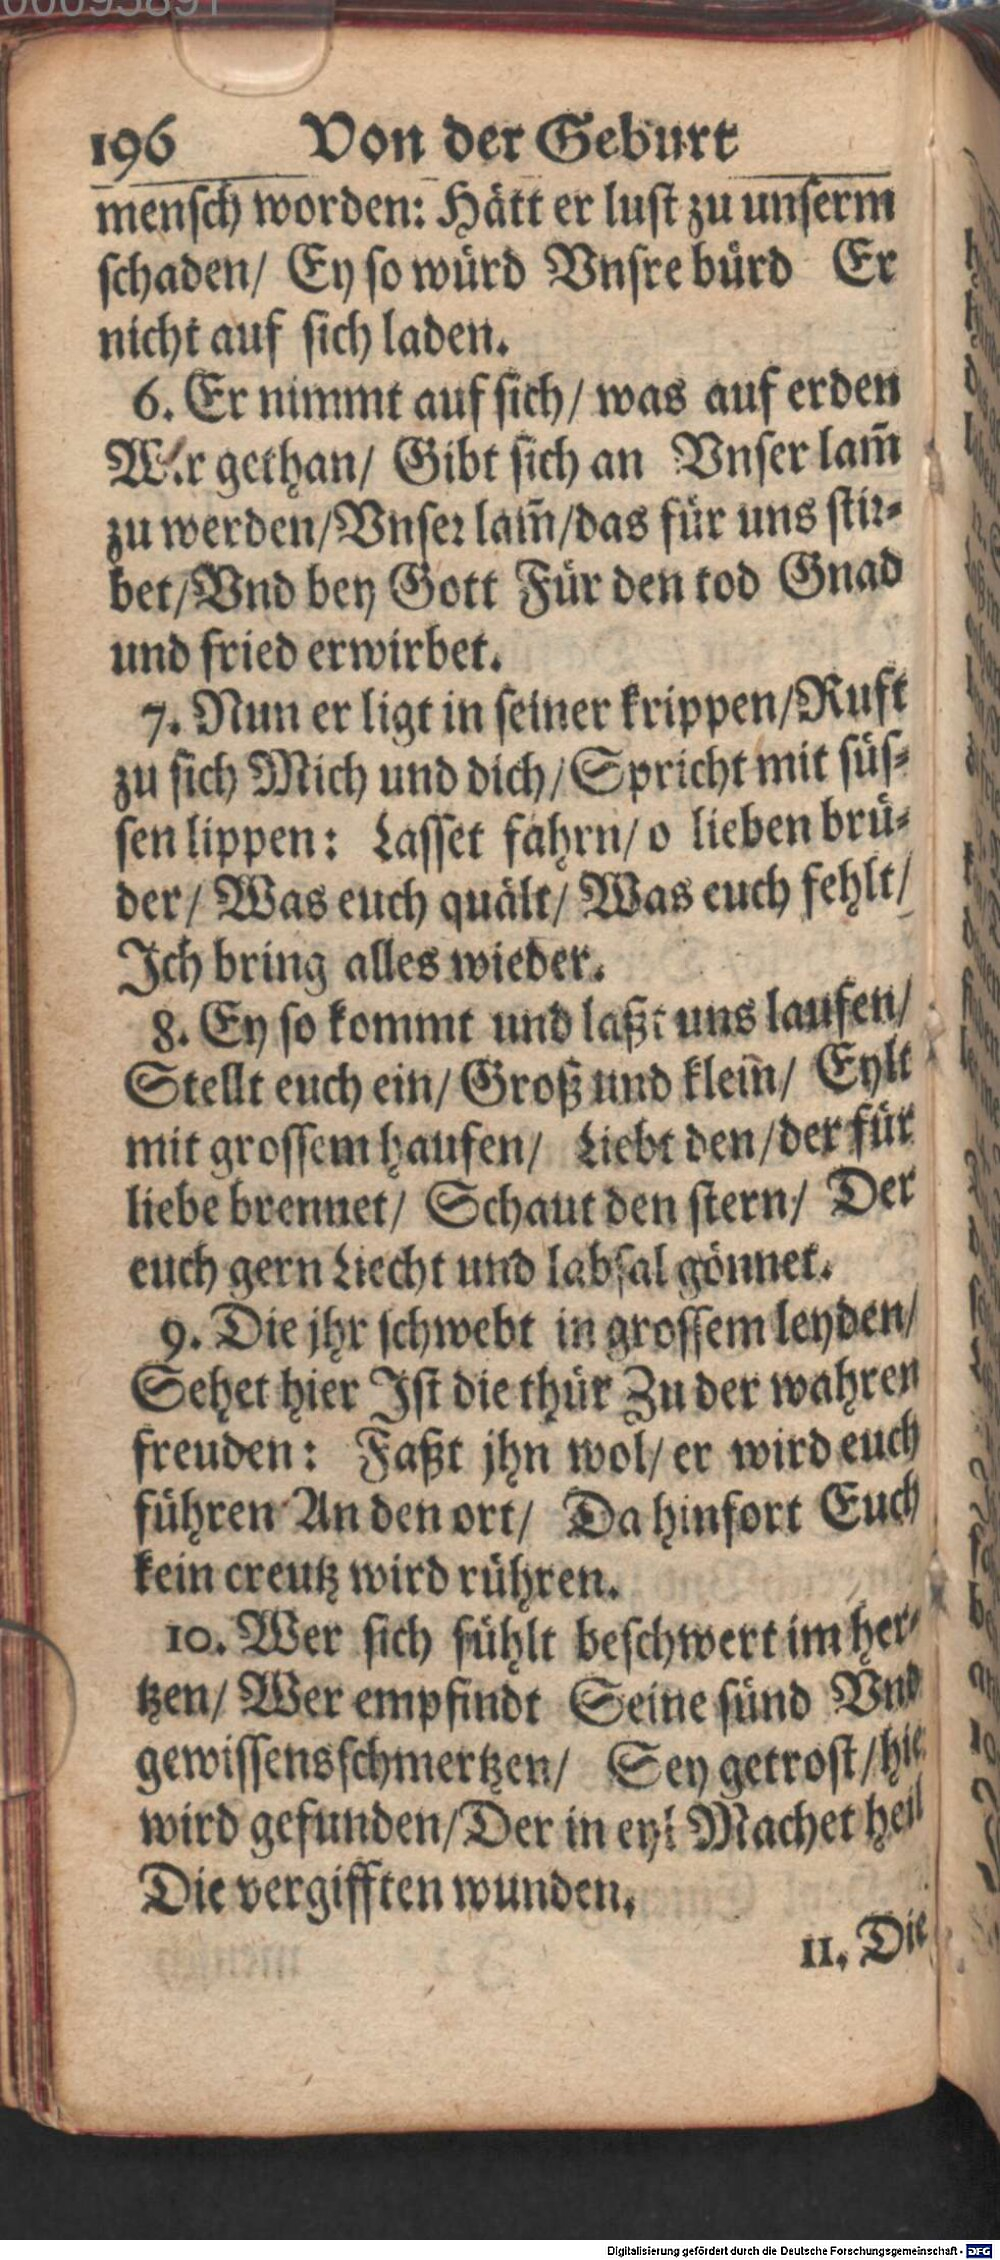 196 Von der Geburt
mensch worden: Hätt er lust zu unserm
schaden/ Ey so würd Vnsre bürd Er
nicht auf sich laden.
6. Er nimmt auf sich/ was auf erden
Wir gethan/ Gibt sich an Vnser lam̃
zu werden/Vnser lam̃/das für uns stir-
bet/Vnd bey Gott Für den tod Gnad
und fried erwirbet.
7. Nun er ligt in seiner krippen/Ruft
zu sich Mich und dich/Spricht mit süs-
sen lippen: Lasset fahrn/ o lieben brü-
der/ Was euch quält/ Was euch fehlt/
Ich bring alles wieder.
8. Ey so kommt und laßt uns laufen/
Stellt euch ein/ Groß und klein̄/ Eylt
mit grossem haufen/ Liebt den/der für
liebe brennet/ Schaut den stern/ Der
euch gern Liecht und labsal gönnet.
9. Die jhr schwebt in grossem leyden/
Sehet hier Ist die thür Zu der wahren
freuden: Faßt jhn wol/ er wird euch
führen An den ort/ Da hinfort Euch
kein creutz wird rühren.
10. Wer sich fühlt beschwert im her-
tzen/ Wer empfindt Seine sünd Vnd
gewissensschmertzen/ Sey getrost/hie
wird gefunden/Der in eyl Machet heil
Die vergifften wunden.
11. Die
Digitalisierung gefördert durch die Deutsche Forschungsgemeinschaft - DFG